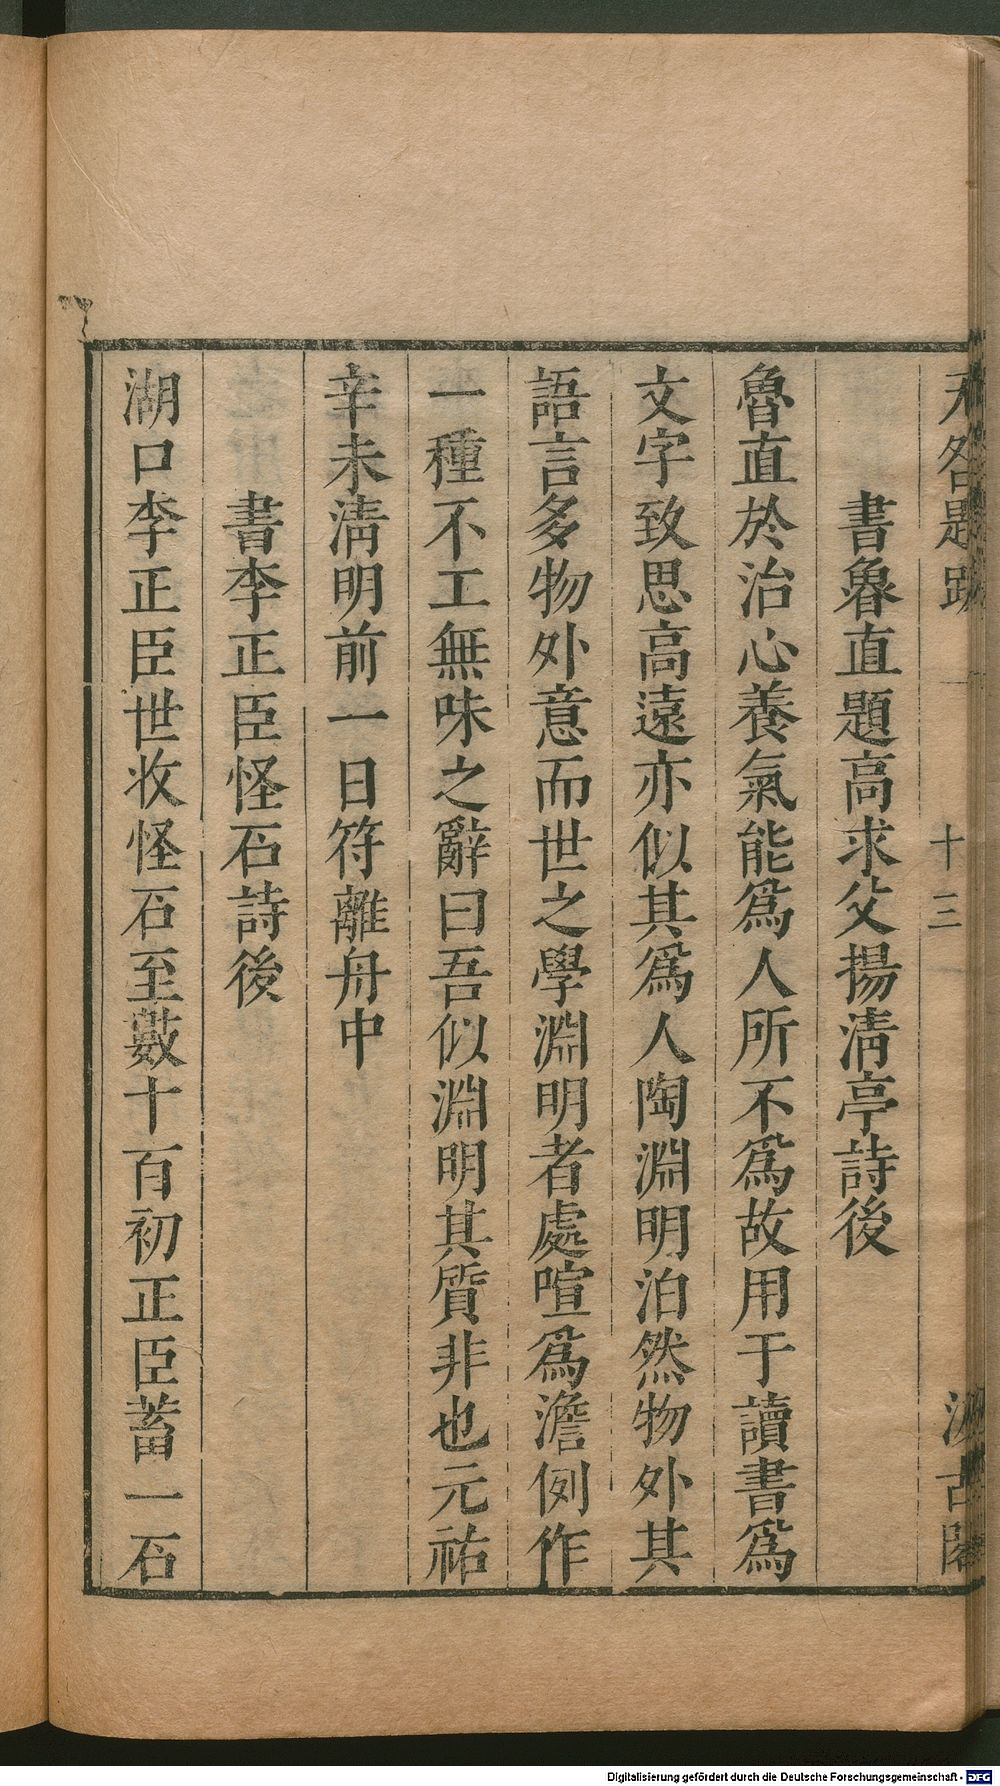 无咎題跋 十三 汲古閣
書魯直題高求父揚清亭詩後
魯直於治心養氣能爲人所不爲故用于讀書爲
文字致思高遠亦似其爲人陶淵明泊然物外故其
語言多物外意而世之學淵明者處喧爲澹例作
一種不工無味之辭曰吾似淵明其質非也元祐
辛未清明前一日符離舟中
書李正臣怪石詩後
湖口李正臣世收怪石至數十百初正臣蓄一石
Digitalisierung gefördert durch die Deutsche Forschungsgemeinschaft - DFG